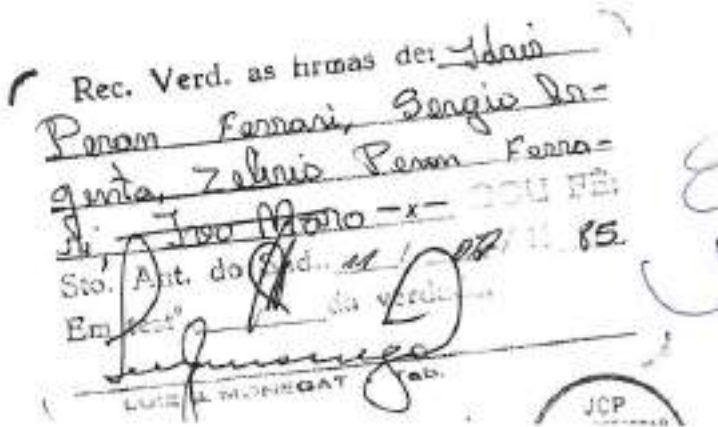 Rec. Verd. as firmas de: Idair
Peran Ferrari, Sergio Ar-
genta, Zelirio Peran Ferra-
ri, Ivo Moro -x- DOU FÉ:
Sto. Ant. do Sud., 11 / 85
Em test° da verd
LUIZ MONEGAT Tab.
JCP